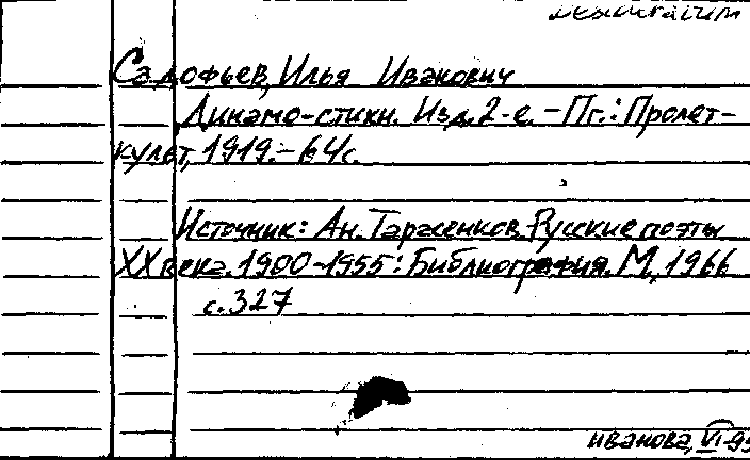 Садофьев, Илья Иванович
Динамо-стихи. Изд. 2-е. - Пг.: Пролет-
культ, 1919. - 64 с.
Источник: Ан. Тарасенков. Русские поэты
XX века. 1900-1955: Библиография. М., 1966
с. 327
Иванова, VI-9